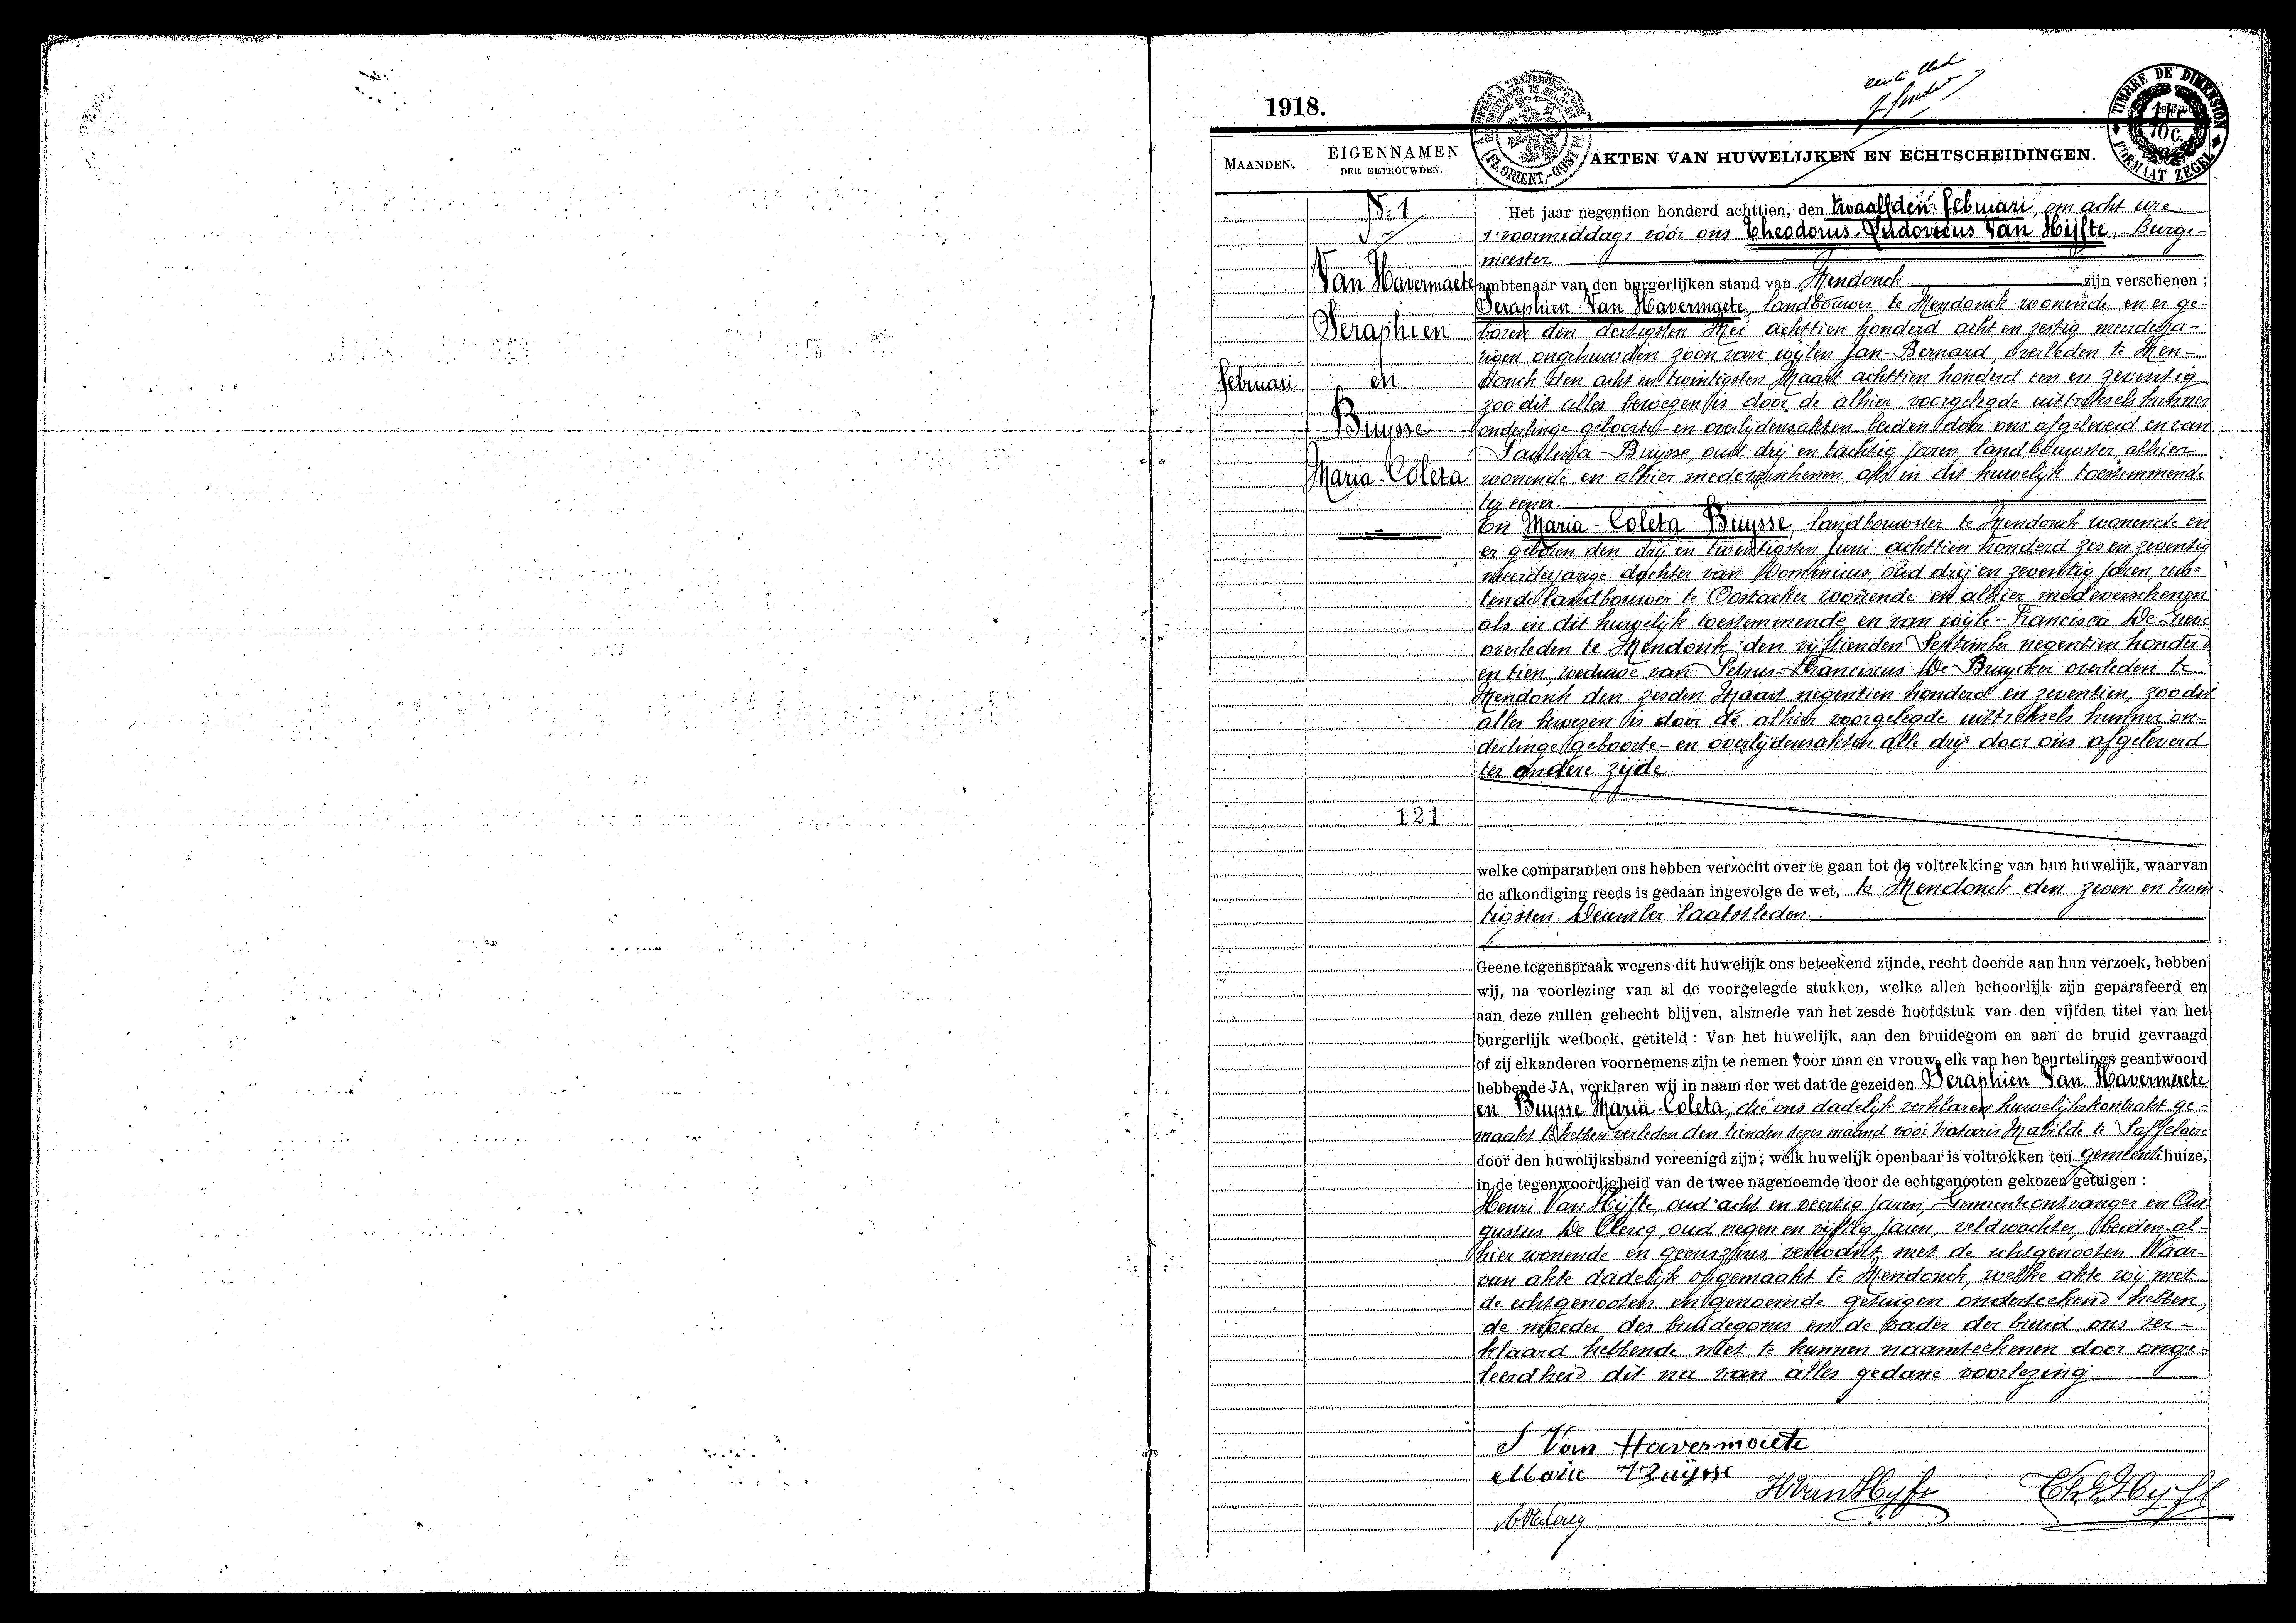 1918.
eerste blad
TIMBRE DE DIMENSION
1 Fr
70 C.
FORMAAT ZEGEL
(FL. ORIENT.-OOST VL.)
MAANDEN.
EIGENNAMEN
DER GETROUWDEN.
AKTEN VAN HUWELIJKEN EN ECHTSCHEIDINGEN.
N. 1
Van Havermaete
Seraphien
en
Buysse
Maria-Coleta
februari
121
Het jaar negentien honderd achttien, den twaalfden februari, om acht ure
s'voormiddags vóór ons Theodorus-Ludovicus Van Hijfte, Burge-
meester
ambtenaar van den burgerlijken stand van Mendonck zijn verschenen :
Seraphien Van Havermaete, landbouwer te Mendonck wonende en er ge-
boren den dertigsten Mei achttien honderd acht en zestig meerderja-
rigen ongehuwden zoon van wijlen Jan-Bernard, overleden te Men-
donck den acht en twintigsten Maart achttien honderd een en zeventig
zoo dit alles bewezen is door de alhier voorgelegde uittreksels hunner
onderlinge geboorte- en overlijdensakten beiden door ons afgeleverd en van
Paulina Buysse, oud drij en tachtig jaren, landbouwster alhier
wonende en alhier medeverschenen als in dit huwelijk toestemmende
ter eener.
En Maria-Coleta Buysse, landbouwster te Mendonck wonende en
er geboren den drij en twintigsten Juni achttien honderd zes en zeventig
meerderjarige dochter van Dominicus, oud drij en zeventig jaren, rus-
tende landbouwer te Oostacker wonende en alhier medeverschenen
als in dit huwelijk toestemmende en van wijle Francisca De
overleden te Mendonk den vijftienden September negentien honderd
en tien, weduwe van Petrus-Franciscus De Bruycker overleden te
Mendonk den zesden Maart negentien honderd en zeventien, zoo dit
alles bewezen is door de alhier voorgelegde uittreksels hunner on-
derlinge geboorte- en overlijdensakten alle drij door ons afgeleverd
ter andere zijde
welke comparanten ons hebben verzocht over te gaan tot de voltrekking van hun huwelijk, waarvan
de afkondiging reeds is gedaan ingevolge de wet, te Mendonck den zeven en twin-
tigsten December laatstleden.
Geene tegenspraak wegens dit huwelijk ons beteekend zijnde, recht doende aan hun verzoek, hebben
wij, na voorlezing van al de voorgelegde stukken, welke allen behoorlijk zijn geparafeerd en
aan deze zullen gehecht blijven, alsmede van het zesde hoofdstuk van den vijfden titel van het
burgerlijk wetboek, getiteld : Van het huwelijk, aan den bruidegom en aan de bruid gevraagd
of zij elkanderen voornemens zijn te nemen voor man en vrouw, elk van hen beurtelings geantwoord
hebbende JA, verklaren wij in naam der wet dat de gezeiden Seraphien Van Havermaete
en Buysse Maria-Coleta, die ons dadelijk verklaren huwelijkskontrakt ge-
maakt te hebben verleden den tienden dezer maand vóór notaris Mabilde te Saffelaere
door den huwelijksband vereenigd zijn; welk huwelijk openbaar is voltrokken ten gemeentehuize,
in de tegenwoordigheid van de twee nagenoemde door de echtgenooten gekozen getuigen :
Henri Van Hijfte, oud acht en veertig jaren, Gemeenteontvanger en Au-
gustus De Clercq, oud negen en vijftig jaren, veldwachter, beiden al-
hier wonende en geenszins verwant met de echtgenooten. Waar-
van akte dadelijk opgemaakt te Mendonck, welke akte wij met
de echtgenooten en genoemde getuigen onderteekend hebben,
de moeder des bruidegoms en de vader der bruid ons ver-
klaard hebbende niet te kunnen naamteekenen door onge-
leerdheid dit na van alles gedane voorlezing
S Van Havermaete
Marie Buysse
HVanHyfte